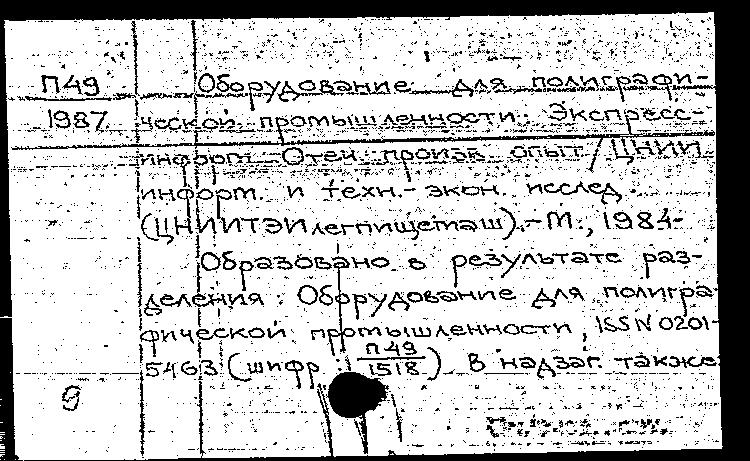 П49
1987
Оборудование для полиграфи-
ческой промышленности: Экспресс-
информ. Отеч. произв. опыт / ЦНИИ
информ. и техн.-экон. исслед.
(ЦНИИТЭИлегпищемаш).-М., 1984-
Образовано в результате раз-
деления: Оборудование для полигра-
фической промышленности, ISSN 0201-
5463 (шифр П49/1518). В надзаг. также
9